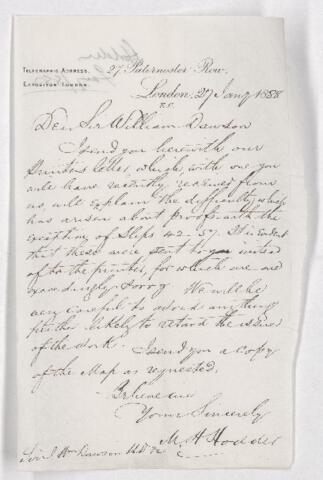 Telegraphic Address,
Expositor London.
27 Paternoster Row,
London, 27 Jany 1888
E.C.
Dear Sir William Dawson
I send you herewith our
Printers letter, which with one you
will have recently received from
us will explain the difficulty which
has arisen about proofs with the
exception of Slips 42-57. It is evident
that these were sent to you instead
of to the printer, for which we are
exceedingly sorry. We will be
very careful to avoid anything
further likely to retard the issue
of the work. I send you a copy
of the Map as requested.
Believe me
Yours Sincerely
M H Hodder
Sir J Wm Dawson LLD &c